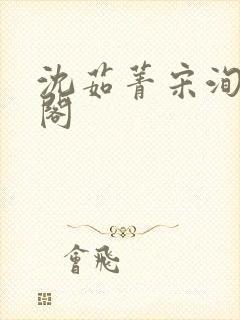 沈茹菁宋洵
閣
會飛